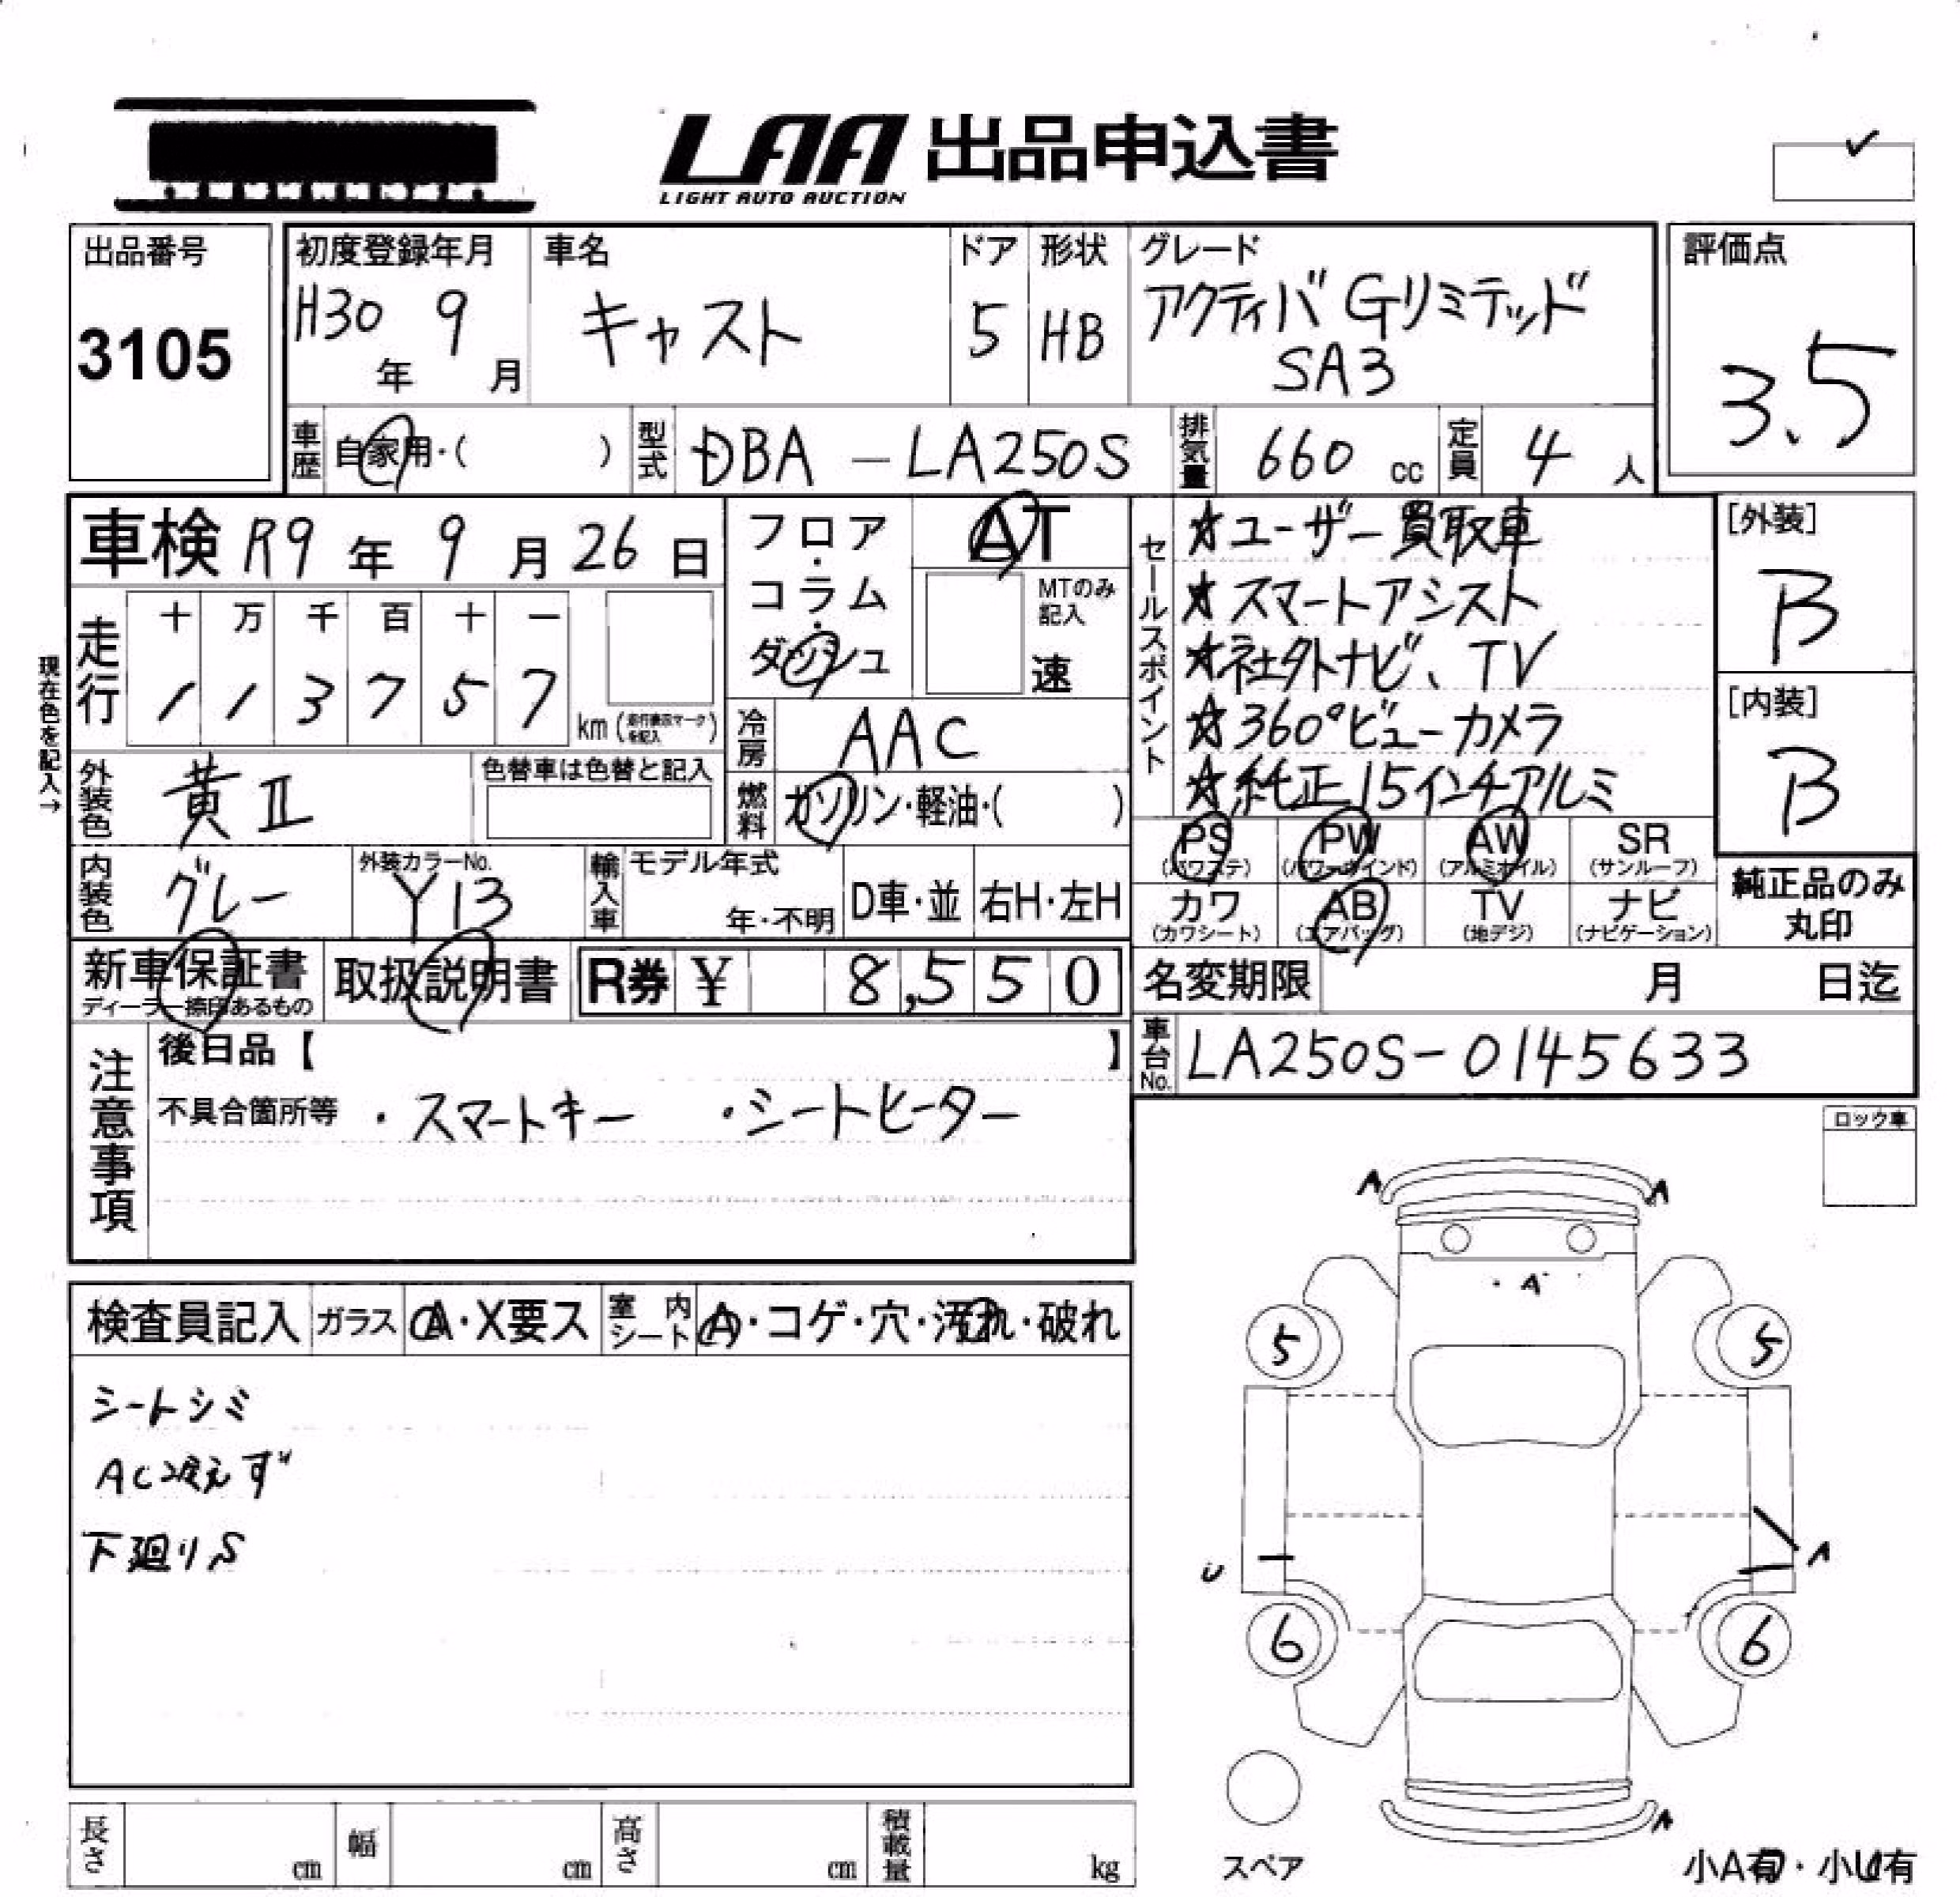 LAA 出品申込書
LIGHT AUTO AUCTION
出品番号
3105
初度登録年月
H30年 9月
車名
キャスト
ドア
5
形状
HB
グレード
アクティバ Gリミテッド
SA3
評価点
3.5
車歴 自家用・( )
型式 DBA-LA250S
排気量 660 cc
定員 4 人
車検 R9年 9月 26日
フロア・コラム・ダッシュ
AT
MTのみ記入
速
セールスポイント
☆ユーザー買取車
★スマートアシスト
★社外ナビ、TV
☆360°ビューカメラ
☆純正15インチアルミ
[外装]
B
[内装]
B
現在色を記入→
走行
十 万 千 百 十 一
1 1 3 7 5 7 km
冷房 AAC
外装色 黄II
色替車は色替と記入
燃料 ガソリン・軽油・( )
PS (パワステ)
PW (パワーウインド)
AW (アルミホイル)
SR (サンルーフ)
カワ (カワシート)
AB (エアバッグ)
TV (地デジ)
ナビ (ナビゲーション)
純正品のみ丸印
内装色 グレー
外装カラーNo.
Y13
輸入車 モデル年式
年・不明
D車・並
右H・左H
新車保証書
ディーラー捺印あるもの
取扱説明書
R券 ¥ 8,550
名変期限 月 日迄
車台No. LA250S-0145633
注意事項
後日品【 】
不具合箇所等 ・スマートキー ・シートヒーター
ロック車
検査員記入
ガラス A・X要ス
室内シート A・コゲ・穴・汚れ・破れ
シートシミ
AC冷えず
下廻りS
A A
A
5 5
U A
6 6
A
スペア
小A有・小U有
長さ cm
幅 cm
高さ cm
積載量 kg